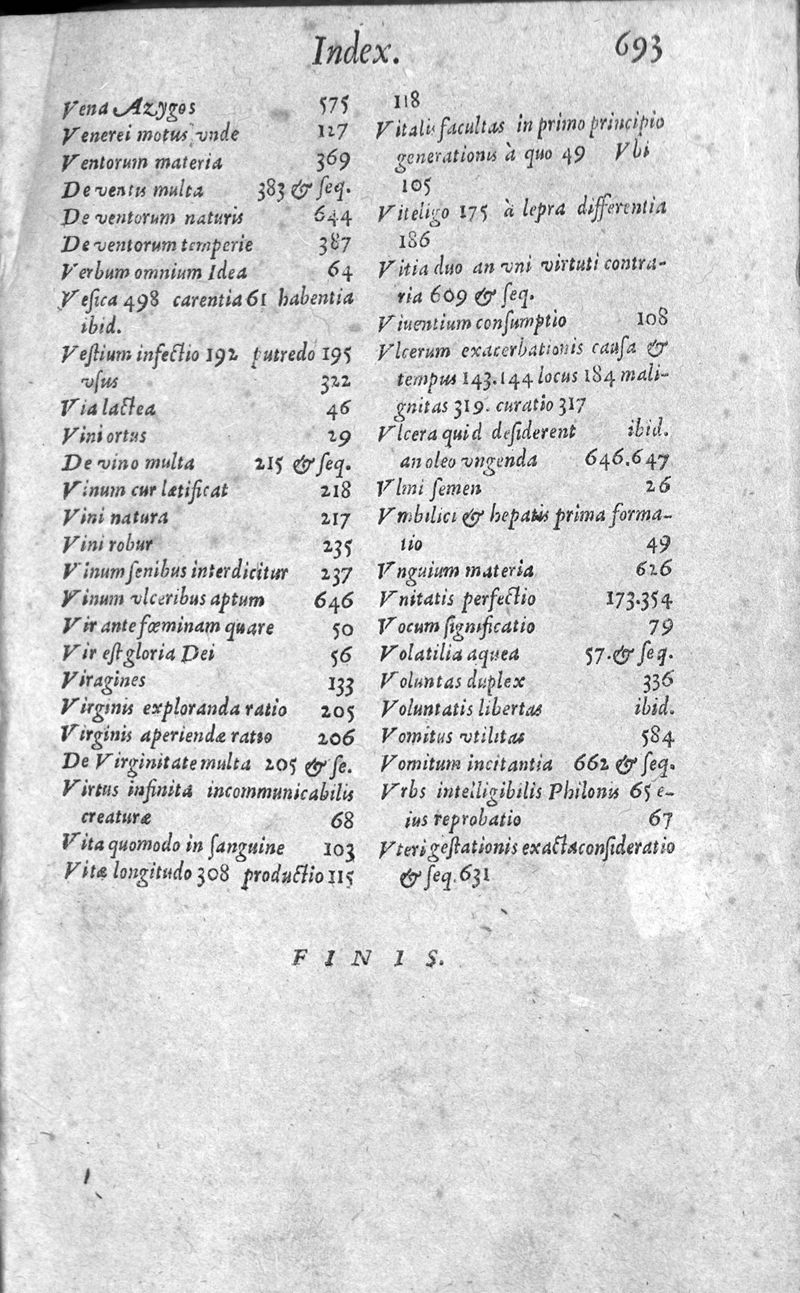 Index. 693
Vena Azygos 575
Venerei motus vnde 127
Ventorum materia 369
De ventis multa 383 & ſeq.
De ventorum naturis 644
De ventorum temperie 387
Verbum omnium Idea 64
Veſica 498 carentia 61 habentia
ibid.
Veſtium infectio 192 putredo 195
vſus 322
Via lactea 46
Vini ortus 29
De vino multa 215 & ſeq.
Vinum cur lætificat 218
Vini natura 217
Vini robur 235
Vinum ſenibus interdicitur 237
Vinum vlceribus aptum 646
Vir ante fœminam quare 50
Vir eſt gloria Dei 56
Viragines 133
Virginis exploranda ratio 205
Virginis aperiendæ ratio 206
De Virginitate multa 205 & ſe.
Virtus infinita incommunicabilis
creaturæ 68
Vita quomodo in ſanguine 103
Vitæ longitudo 308 productio 115
118
Vitalis facultas in primo principio
generationis à quo 49 Vbi
105
Viteligo 175 à lepra differentia
186
Vitia duo an vni virtuti contra-
ria 609 & ſeq.
Viuentium conſumptio 108
Vlcerum exacerbationis cauſa &
tempus 143.144 locus 184 mali-
gnitas 319. curatio 317
Vlcera quid deſiderent ibid.
an oleo vngenda 646.647
Vlmi ſemen 26
Vmbilici & hepatis prima forma-
tio 49
Vnguium materia 626
Vnitatis perfectio 173.354
Vocum ſignificatio 79
Volatilia aquea 57. & ſeq.
Voluntas duplex 336
Voluntatis libertas ibid.
Vomitus vtilitas 584
Vomitum incitantia 662 & ſeq.
Vrbs intelligibilis Philonis 65 e-
ius reprobatio 67
Vteri geſtationis exacta conſideratio
& ſeq. 631
FINIS.